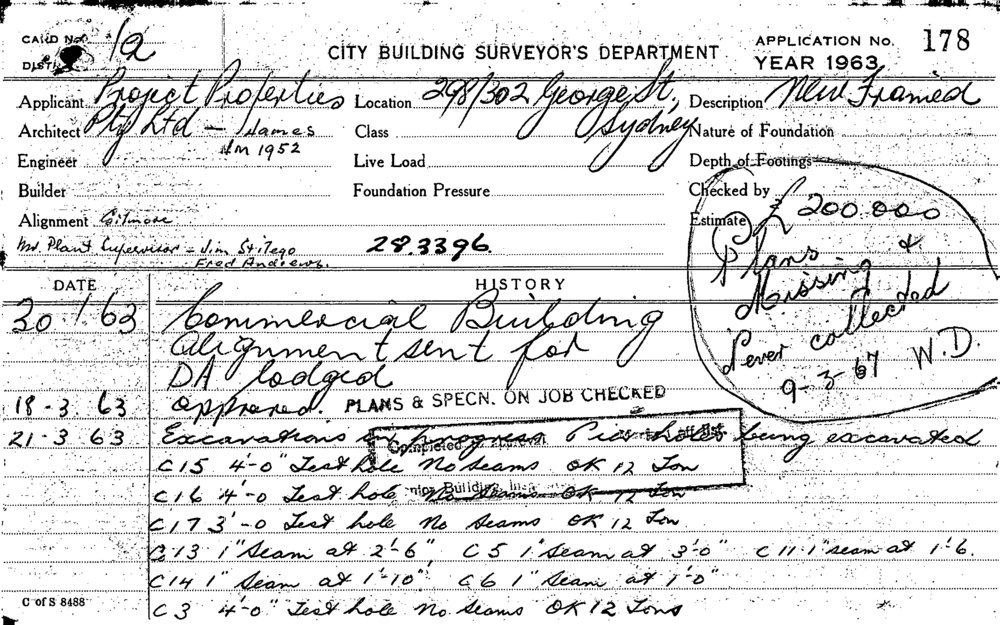 CARD No. 12
DIST.
CITY BUILDING SURVEYOR'S DEPARTMENT
APPLICATION No. 178
YEAR 1963
Applicant Project Properties
Location 298/302 George St,
Description New Framed
Architect Pty Ltd – James
Class Sydney
Nature of Foundation
JM 1952
Engineer
Live Load
Depth of Footings
Builder
Foundation Pressure
Checked by
Alignment Gilmore
Estimate £ 200.000
Mr. Plant Supervisor – Jim
Fred Andrews.
28.3396.
Plans
Missing &
Never collected
9-3-67 W.D.
DATE HISTORY
30.1.63 Commercial Building
Alignment sent for
DA lodged
18-3.63 approved. PLANS & SPECN. ON JOB CHECKED
21-3 63 Excavations in progress Pier holes being excavated
Completed
C15 4'-0" Test hole No seams OK 12 Ton
Building
C16 4'-0 Test hole No Seams OK 12 Ton
C17 3'-0 Test hole No Seams OK 12 Ton
C13 1" Seam at 2'-6" C5 1" Seam at 3'-0" C11 1" seam at 1'-6.
C14 1" Seam at 1'-10" C6 1" Seam at 1'-0"
C of S 8488
C3 4'-0" Test hole No Seams OK 12 Tons